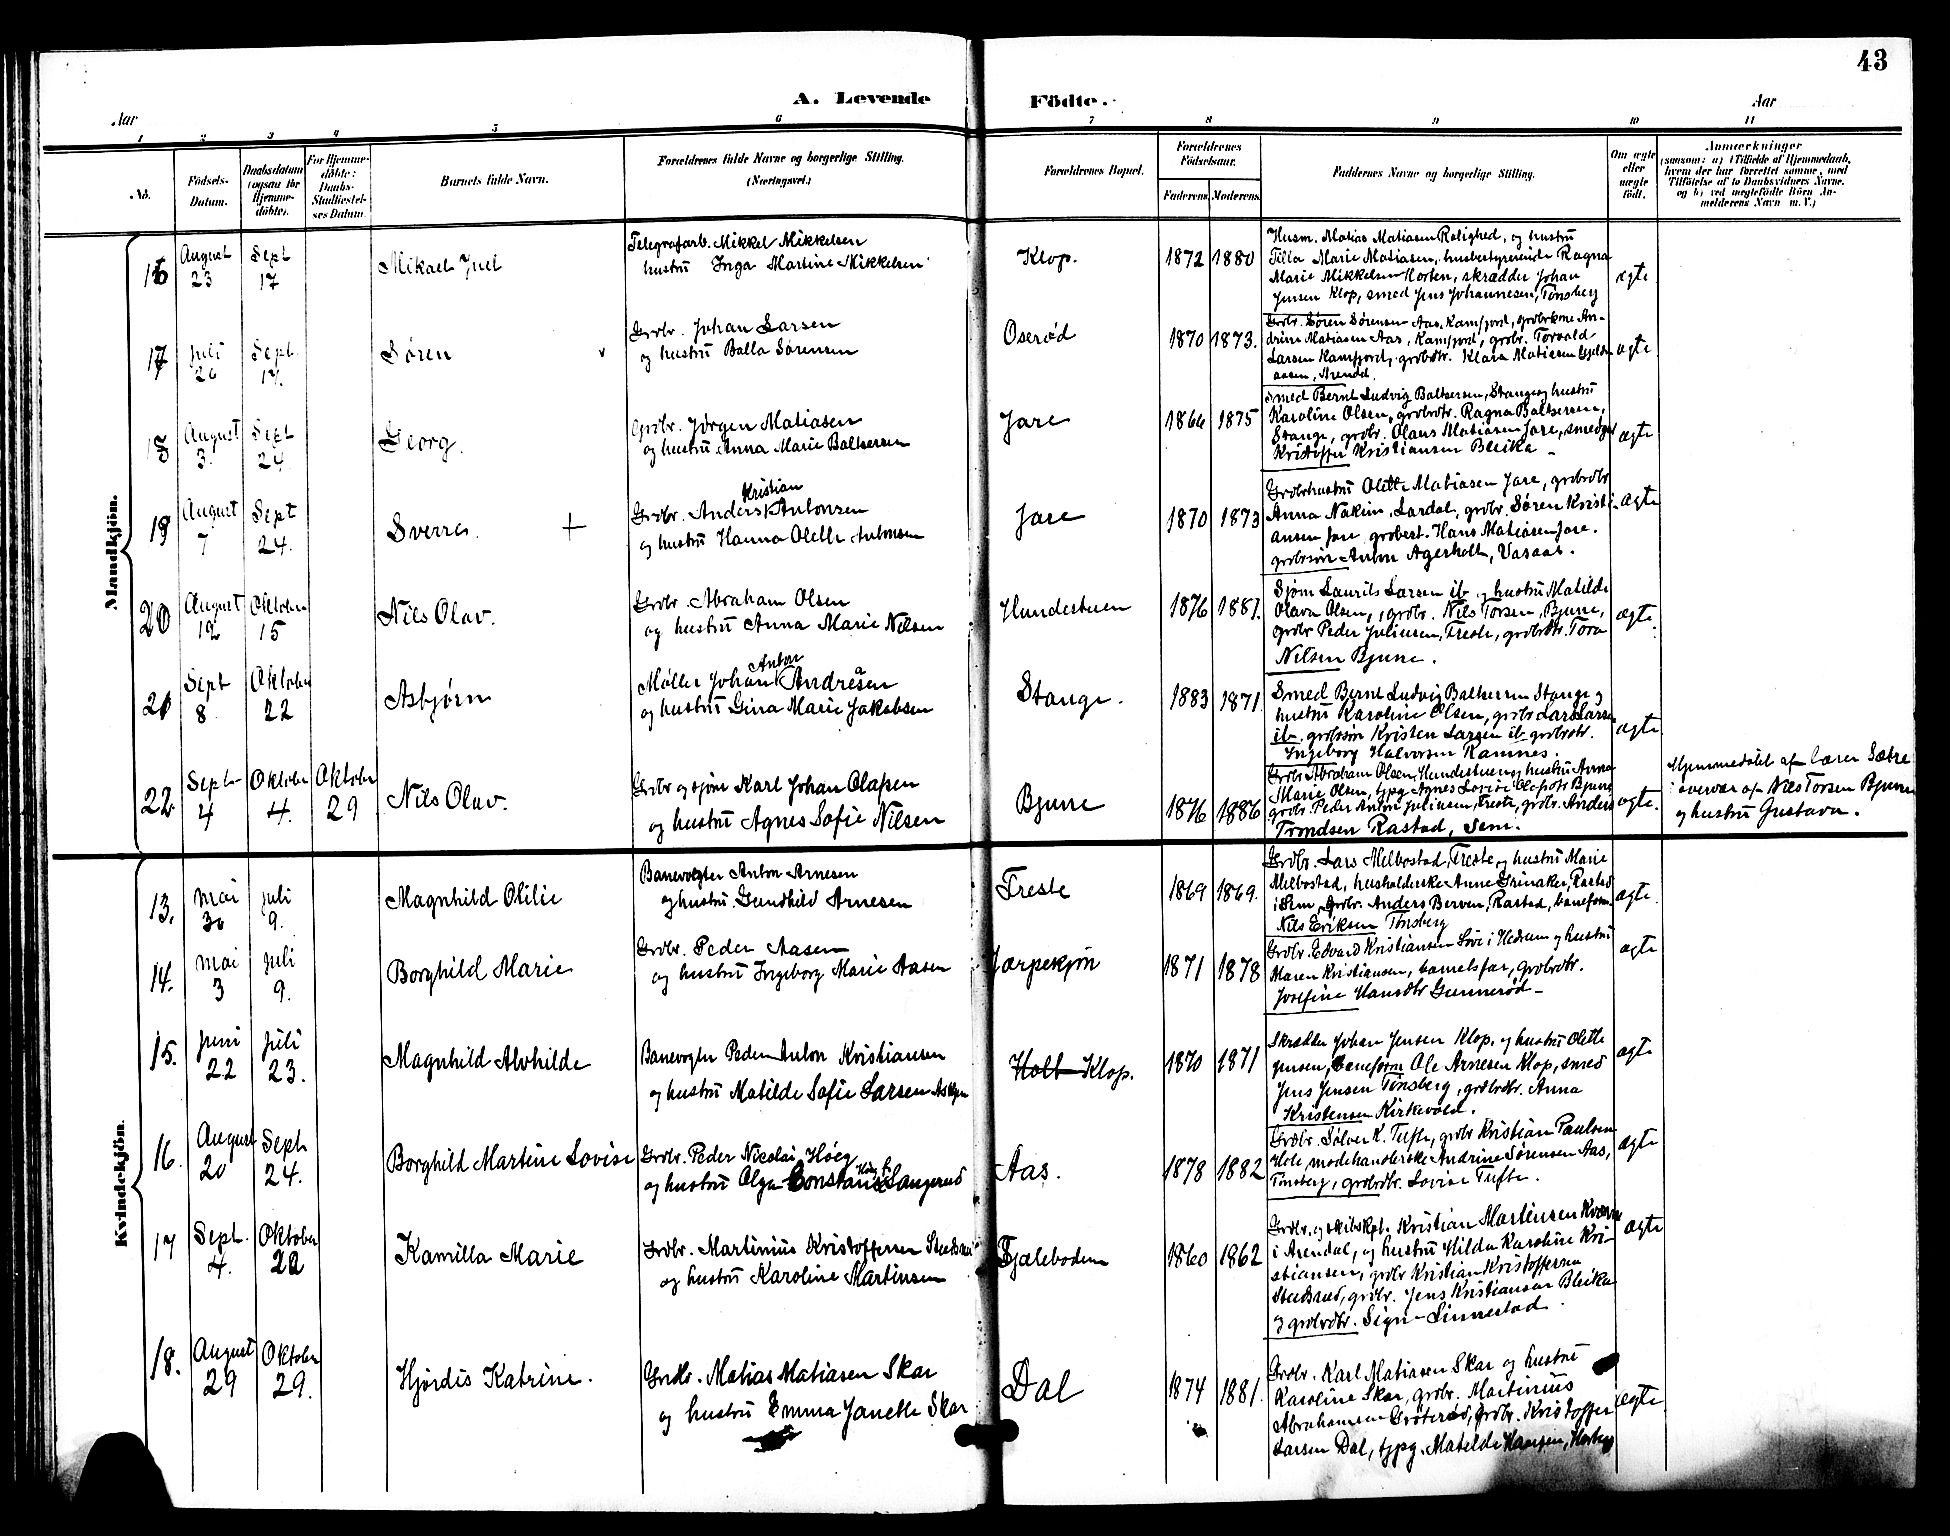 43
A. Levende Födte.
Aar
Aar
1 2 3 4 5 6 7 8 9 10 11
No.
Födsels-
Datum.
Daabsdatum
(ogsaa for
Hjemme-
döbte).
For Hjemme-
döbte:
Daabs-
Stadfæstel-
ses Datum.
Barnets fulde Navn.
Forældrenes fulde Navne og borgerlige Stilling.
(Næringsvei.)
Forældrenes Bopæl.
Forældrenes
Födselsaar.
Faderens. Moderens.
Faddernes Navne og borgerlige Stilling.
Om ægte
eller
uægte
födt.
Anmærkninger
(saasom: a) i Tilfælde af Hjemmedaab,
hvem der har forrettet samme, med
Tilföielse af to Daabsvidners Navne.
og b) ved uægtefödte Börn An-
melderens Navn m. V.)
Mandkjön.
16
August 23
Sept 17
Mikael Juel
Telegrafarb. Mikkel Mikkelsen
hustru Inga Martine Mikkelsen
Klop.
1872 1880
Husm. Matias Matiasen Rolighed, og hustru
Tilla Marie Matiasen, husbestyrerinde Ragna
Marie Mikkelsen Horten, skrædder Johan
Jensen Klop, smed Jens Johannesen, Tønsberg
ægte
17
Juli 20
Sept. 17.
Søren
Grdbr. Johan Larsen
og hustru Balla Sørensen
Oserød
1870 1873.
Grdbr. Søren Sørensen Aas, Ramfjord, grdbrkone An-
drine Matiasen Aas, Ramfjord, grdbr. Torvald
Larsen Ramfjord, grdbrdtr. Klara Matiasen
ægte
18
August 3.
Sept 24
Georg.
Grdbr. Jørgen Matiasen
og hustru Anna Marie Baltsersen
Jare
1866 1875
Smed Bernt Ludvig Baltsersen, Stange og hustru
Karoline Olsen, grdbrdtr. Ragna Baltsersen,
Stange, grdbr. Olaus Matiasen Jare, smedgut
Kristoffer Kristiansen Bleika -
ægte
19
August 7
Sept 24.
Sverre. +
Kristian
Grdbr. Anders Antonsen
og hustru Hanna Olette Antonsen
Jare
1870 1873
Grdbrhustru Olette Matiasen Jare, grdbrdtr
Anna Nakim, Lardal, grdbr. Søren Kristi-
ansen Jare grdbest. Hans Matiasen Jare.
grdbrsøn Anton Agerholt, Vasaas.
ægte
20
August 12
Oktober 15
Nils Olav.
Grdbr. Abraham Olsen
og hustru Anna Marie Nilsen
Hundestuen
1876 1881.
Sjøm Laurits Larsen ib. og hustru Matilde
Olava Olsen, grdbr. Nils Torsen, Bjune,
grdbr Peder Juliusen, Freste, grdbrdtr. Tora
Nilsen Bjune.
ægte.
21
Sept 8
Oktober 22
Asbjørn
Anton
Møller Johan Andresen
og hustru Gina Marie Jakobsen
Stange.
1883 1871
Smed Bernt Ludvig Baltsersen Stange og
hustru Karoline Olsen, grdbr Lars Larsen
ib. grdbrsøn Kristen Larsen ib. grdbrdtr.
Ingeborg Halvorsen Ramnes.
ægte
22
Sept 4
Oktober 4.
Oktober 29
Nils Olav.
Grdbr og sjøm Karl Johan Olafsen
og hustru Agnes Sofie Nilsen
Bjune
1876 1886
Grdbr Abraham Olsen, Hundestuen og hustru Anna
Marie Olsen, tjpg Agnes Lovise Olafsdtr Bjune
grdbr. Peder Anton Juliusen, Freste, grdbr. Anders
Trondsen Rastad, Sem.
ægte.
Hjemmedøbt af lærer Sætre
i overvær af Nils Torsen Bjune
og hustru Gustava.
Kvindekjön.
13.
Mai 30
Juli 9.
Magnhild Otilie
Banevogter Anton Arnesen
og hustru Gundhild Arnesen
Freste
1869 1869.
Grdbr. Lars Melbostad, Freste og hustru Marie
Melbostad, husholderske Anne Grinaker, Rastad
i Sem, grdbr. Anders Berven, Rastad, baneform.
Nils Eriksen Tønsberg
ægte.
14.
Mai 3
Juli 9.
Borghild Marie
Grdbr. Peder Aasen
og hustru Ingeborg Marie Aasen
Jærpekjøn
1871 1878
Grdbr. Edvard Kristiansen Løve i Hedrum og hustru
Maren Kristiansen, barnets far, grdbrdtr.
Josefine Hansdtr Gunnerød -
ægte
15.
Juni 22
Juli 23.
Magnhild Alvhilde
Banevogter Peder Anton Kristiansen
og hustru Matilde Sofie Larsen
Holt Klop.
1870 1871
Skrædder Johan Jensen Klop, og hustru Olette
Jensen, baneform Ole Arnesen Klop, smed
Jens Jensen Tønsberg, grdbrdtr. Anna
Kristensen Kirkevold.
ægte
16.
August 20
Sept 24.
Borghild Martine Lovise
Grdbr. Peder Nicolai Høeg
og hustru Olga Constanse Langerud
Aas.
1878 1882
Grdbr. Sølver K. Tufte, grdbr Kristian Paulsen
Hole, modehandlerske Andrine Sørensen Aas,
Tønsberg, grdbrdtr. Lovise Tufte.
ægte
17
Sept. 4.
Oktober 22
Kamilla Marie
Grdbr. Martinius Kristoffersen Stedsrud
og hustru Karoline Martinsen
Fjæleboden
1860 1862
Grdbr. og skibskpt. Kristian Martinsen Kværve
i Arendal, og hustru Hilda Karoline Kri-
stiansen, grdbr Kristian Kristoffersen
Stedsrud, grdbr. Jens Kristiansen Bleika
og grdbrdtr. Signe Linnestad.
ægte
18.
August 29
Oktober 29.
Hjørdis Katrine.
Grdbr. Matias Matiasen Skar
og hustru Emma Janette Skar
Dal
1874 1881.
Grdbr. Karl Matiasen Skar og hustru
Karoline Skar, grdbr. Martinius
Abrahamsen Grøterød, grdbr. Kristoffer
Larsen Dal, tjpg. Matilde Hansen,
ægte